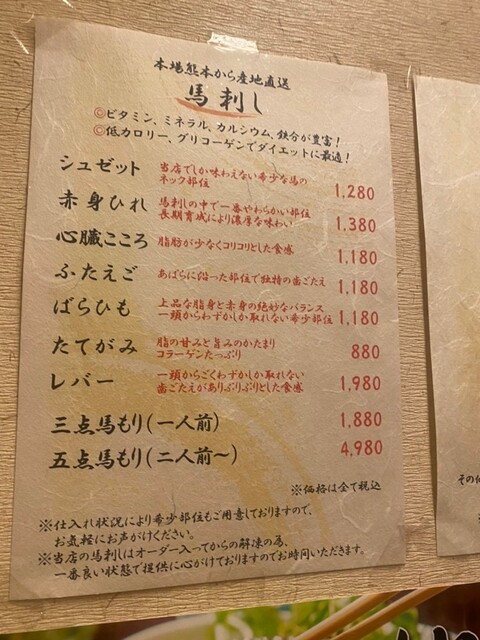 本場熊本から産地直送
馬刺し
◎ビタミン、ミネラル、カルシウム、鉄分が豊富！
◎低カロリー、グリコーゲンでダイエットに最適！
シュゼット 当店でしか味わえない希少な馬の
ネック部位 1,280
赤身ひれ 馬刺しの中で一番やわらかい部位
長期育成により濃厚な味わい 1,380
心臓こころ 脂肪が少なくコリコリとした食感 1,180
ふたえご あばらに沿った部位で独特の歯ごたえ 1,180
ばらひも 上品な脂身と赤身の絶妙なバランス
一頭からわずかしか取れない希少部位 1,180
たてがみ 脂の甘みと旨みのかたまり
コラーゲンたっぷり 880
レバー 一頭からごくわずかしか取れない
歯ごたえがありぷりぷりとした食感 1,980
三点馬もり(一人前) 1,880
五点馬もり(二人前〜) 4,980
※価格は全て税込
※仕入れ状況により希少部位もご用意しておりますので、
お気軽にお声がけください。
※当店の馬刺しはオーダー入ってからの解凍の為、
一番良い状態で提供に心がけておりますのでお時間いただきます。
その他